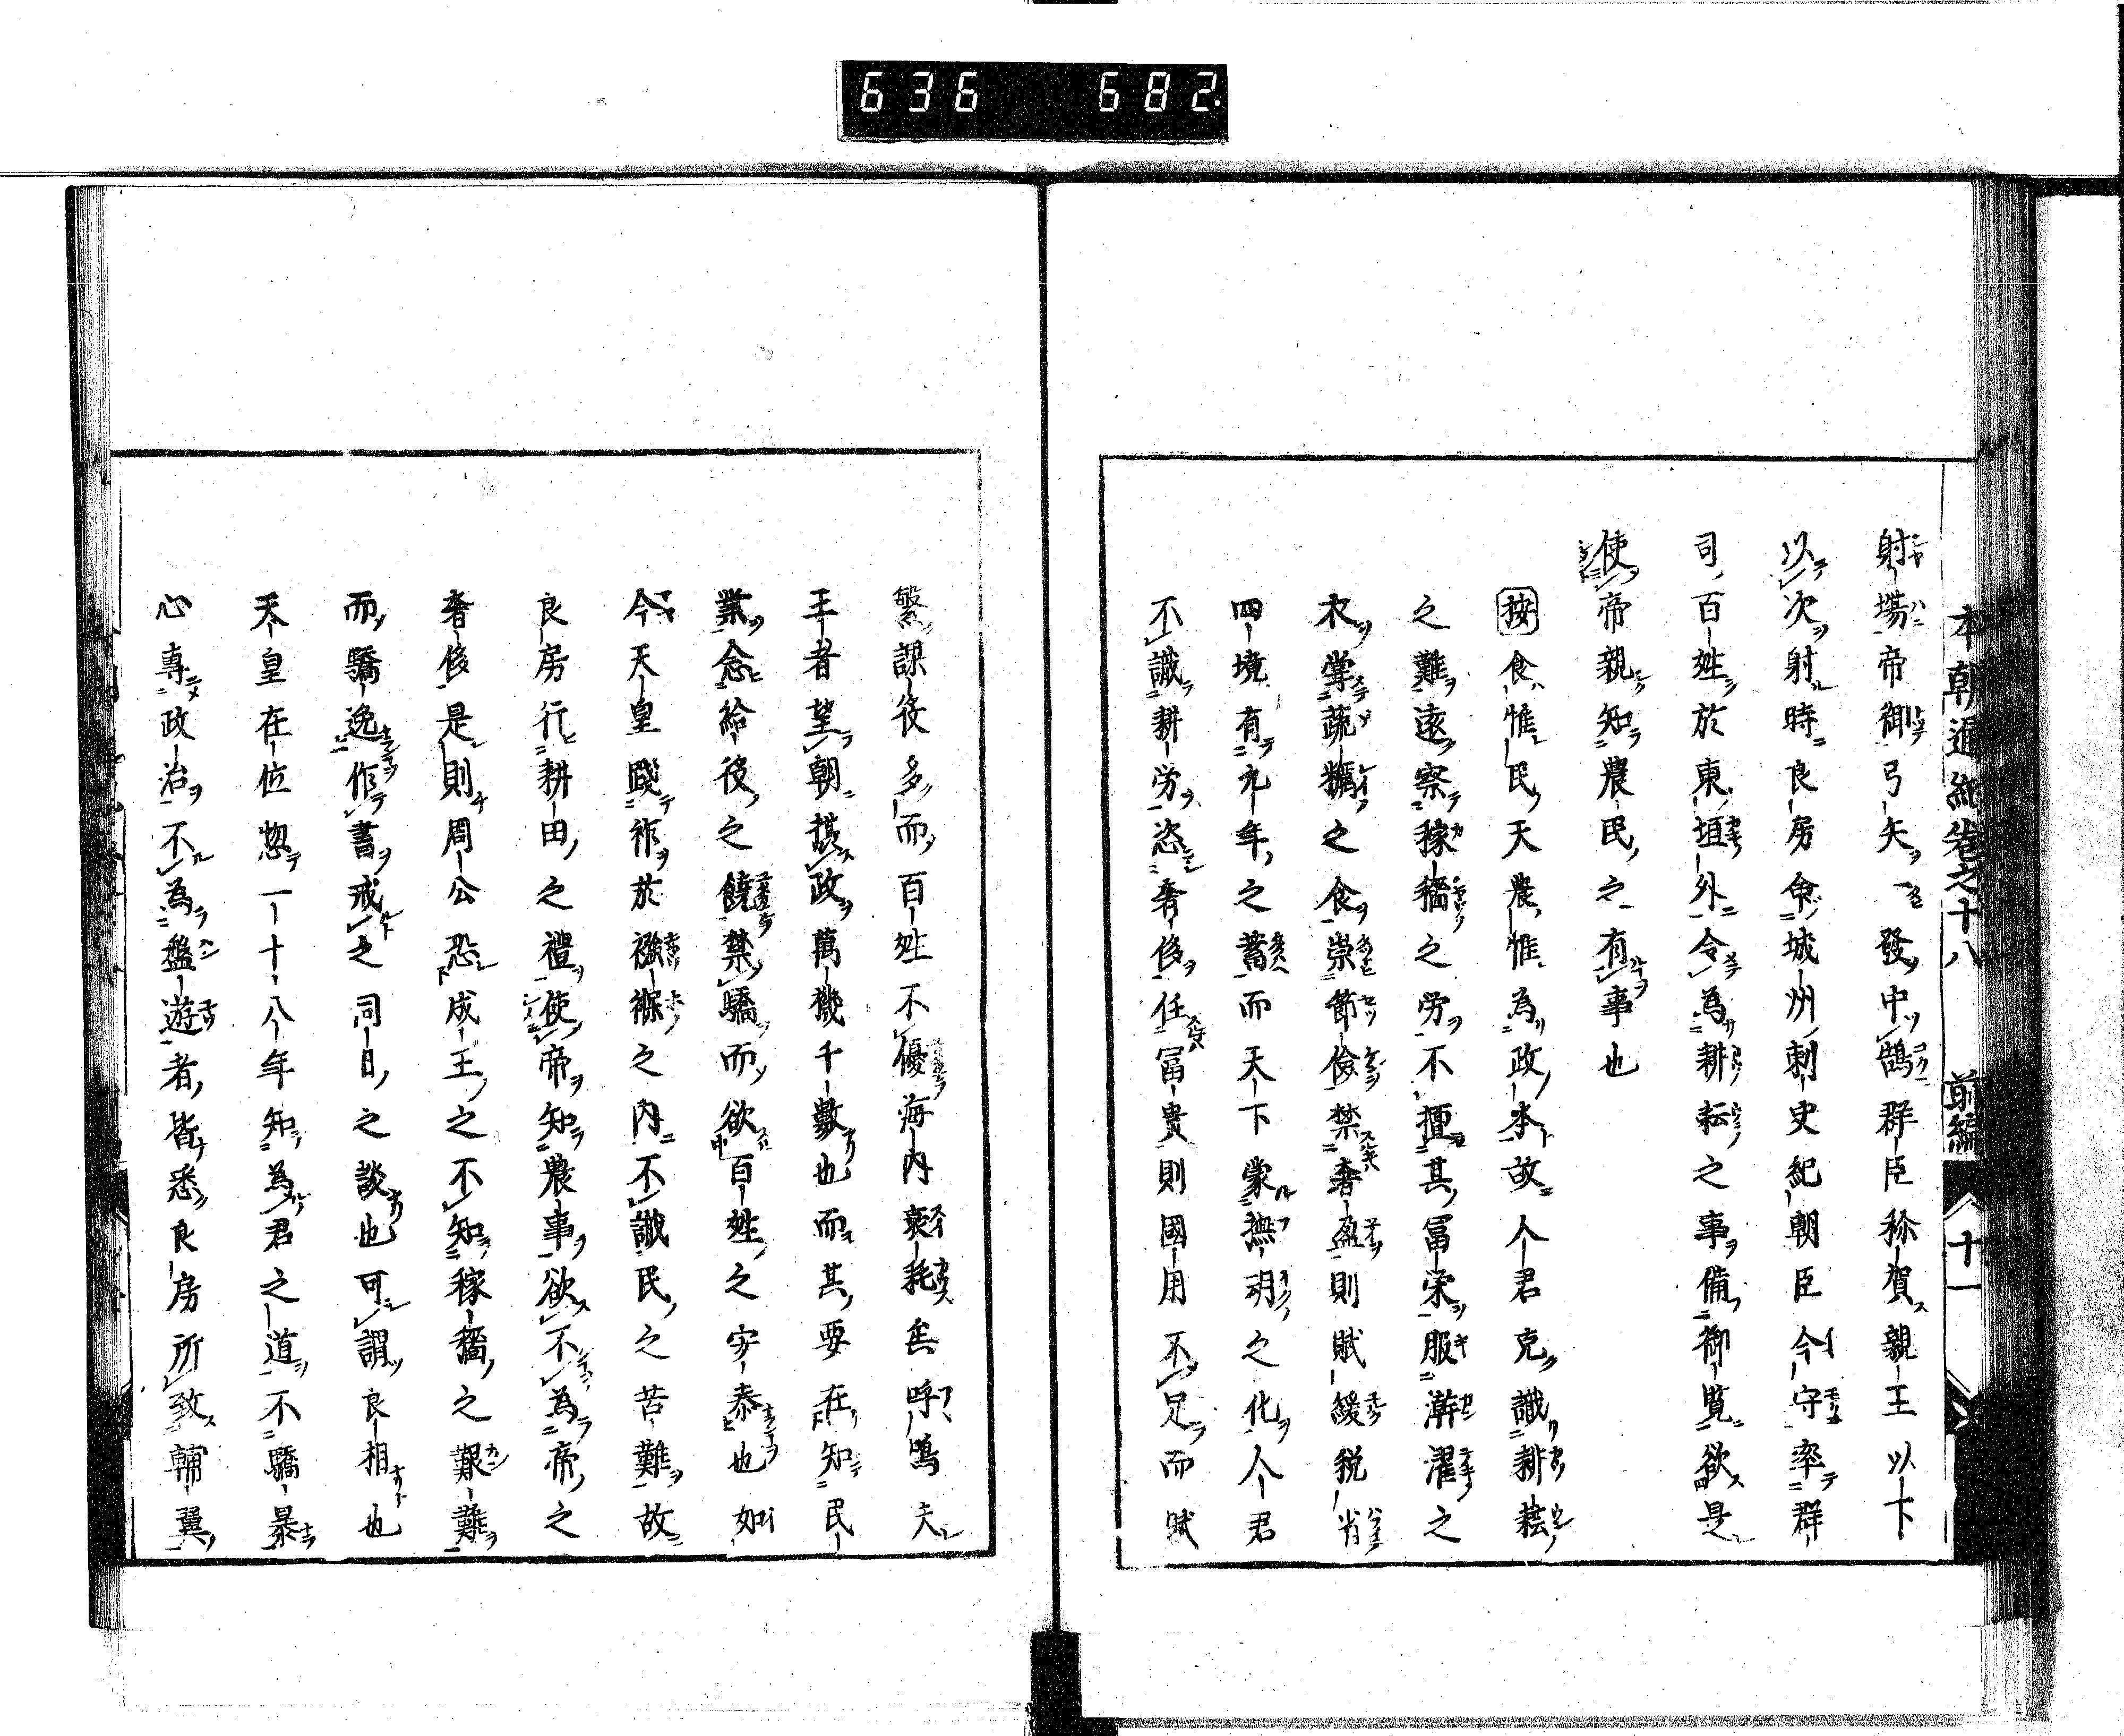 636 682.
本朝通紀卷之十八 前編 十一
射場帝御弓矢一發中鵠群臣稱賀親王以下
以次射時良房命城州刺史紀朝臣今守率群
司百姓於東垣外令為耕耘之事備御覧欲是
使帝親知農民之有事也
按食惟民天農惟為政本故人君克識耕耘
之難遠察稼穡之労不擅其冨栄服澣濯之
衣掌蔬糲之食崇節儉禁奢盈則賦緩税省
四境有九年之蓄而天下蒙撫育之化人君
不識耕労恣奢侈任冨貴則國用不足而賦
繁課役多而百姓不優海内衰耗矣呼嗚夫
王者望朝揽政萬機千數也而其要在知民
業念給役之饒禁驕而欲百姓之安泰也如
今天皇踐祚於襁褓之内不識民之苦難故
良房行耕田之禮使帝知農事欲不為帝之
奢侈是則周公恐成王之不知稼穡之艱難
而驕逸作書戒之同日之談也可謂良相也
天皇在位惣一十八年知為君之道不驕暴
心專政治不為盤遊者皆悉良房所致輔翼